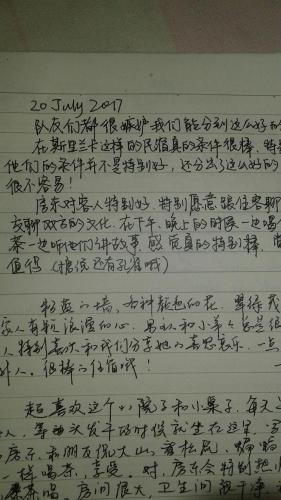 20 July 2017
队友们都很嫉妒我们能分到这么好的
在斯里兰卡这样的民宿真的条件很棒,特别
他们的条件并不是特别好,还分出了这么好的
很不容易!
房东对客人特别好,特别愿意跟住客聊
交聊双方的文化.在下午、晚上的时候一边喝
茶一边听他们讲故事,感觉真的特别棒,
值得(据说还有孔雀哦)
粉蓝的墙、各种颜色的花、
家人有粒浪漫的心.男主和小羊
人特别喜欢和我们分享她的喜怒哀乐,一点
外人。很棒的住宿哦!
超喜欢这个小院子和小桌子,每天
人,等头发干的时候就坐在这里,
和房东、和朋友侃大山,看松鼠、蝙蝠
一样喝茶,享受.对,房东会特别热
茶喝.房间很大,卫生间很干净